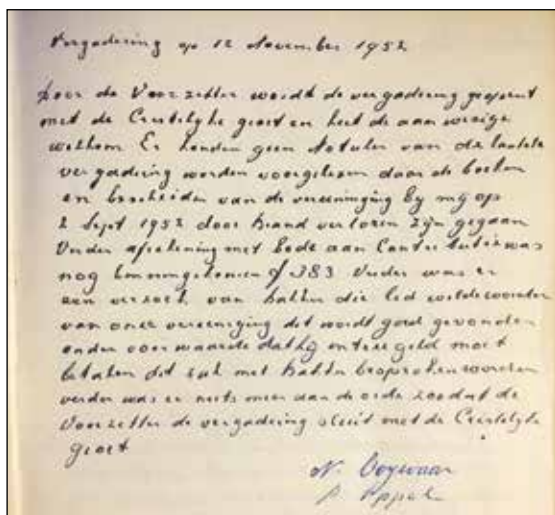 Vergadering op 12 November 1952
Door de Voorzetter wordt de vergadering geopent
met de Crestelyke groet en heet de aan wezige
welkom Er konden geen Notulen van de laatste
vergadering worden voorgelezen daar de boeken
en bescheiden van de vereeniging by my op
2 Sept 1952 door brand verloren zyn gegaan
Verder afrekening met bode aan Contributie was
nog binnengekomen f 383 Verder was er
een verzoek van bakker die lid wilde worden
van onze vereeniging dit wordt goed gevonden
onder voorwaarde dat hy intree geld moet
betalen dit zal met bakker besproken worden
verder was er niets meer aan de orde zoodat de
Voorzetter de vergadering sluit met de Crestelyke
groet
N.